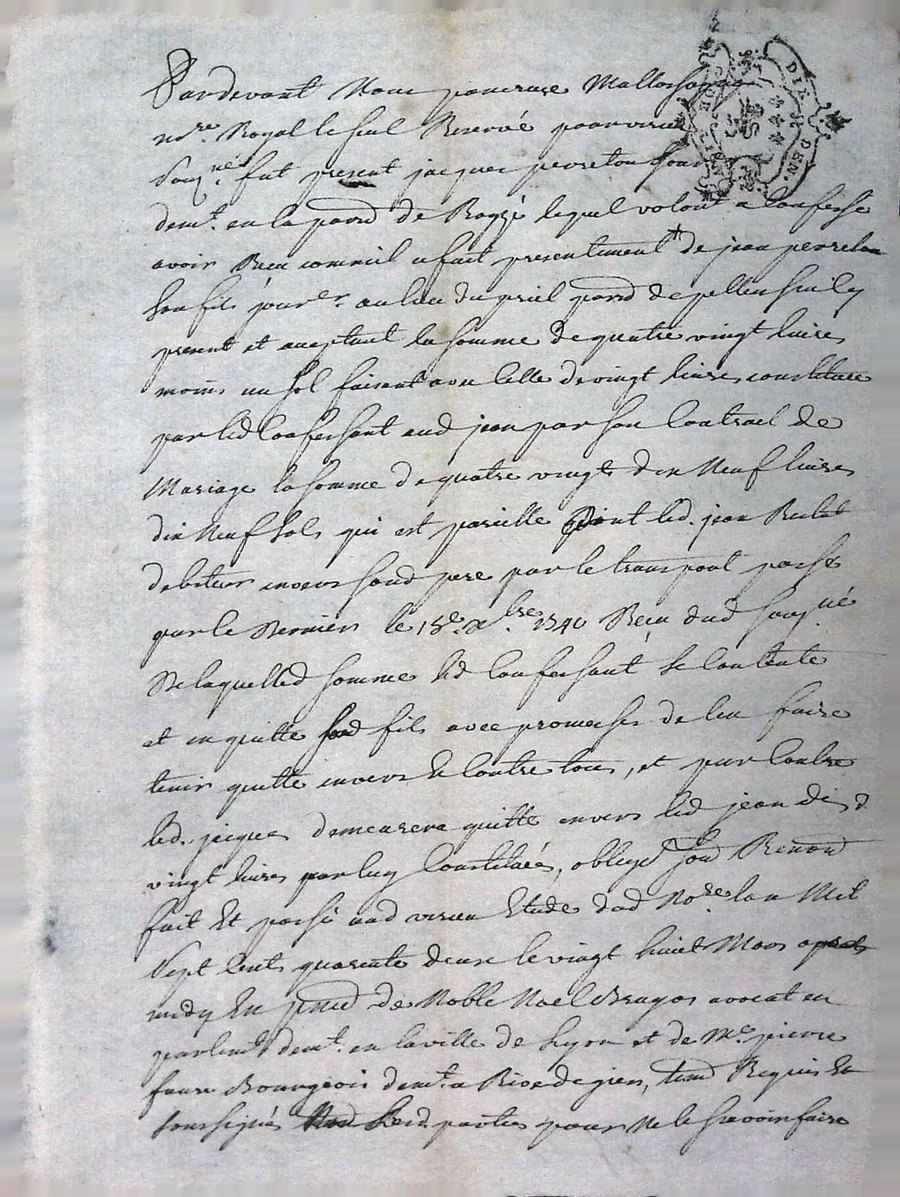 Pardevant Nous
nore Royal le seul Reservé pour virieu
Sousigné fut present jacques perreton
demt. en la paroisse de lequel volont. a confessé
avoir Receu comme il a fait presentiment de jean perreton
son fils au lieu du paroisse de pellussin icy
present et aceptant la somme de quatre vingt livres
moins un sol faisant avec celle de vingt livres constituée
par led Confessant aud jean par son Contract de
Mariage la somme de quatre vingt dix Neuf livres
dix Neuf sols qui est pareille dont led. jean
debiteur envers sond pere par le transport passé
par le dernier le 15e. xbre 1740 Receu dud sousigné
De laquelled somme led Confessant se Contente
et en quitte sond fils avec promesses de len faire
tenir quitte envers & Contre tous, et par Contre
led. jacques demeurera quitte envers led jean desd
vingt livres par luy Constituées, oblige
fait Et passé aud virieu Etude dud Nore lan Mil
Sept Cents quarente deux le vingt huit Mars apres
midy En presence de Noble Noel avocat en
parlemt demt. en la ville de Lyon et de Me pierre
faure Bourgeois demt. a Rive de gier, Requis Et
soussignés lesd parties pour ne le scavoir faire